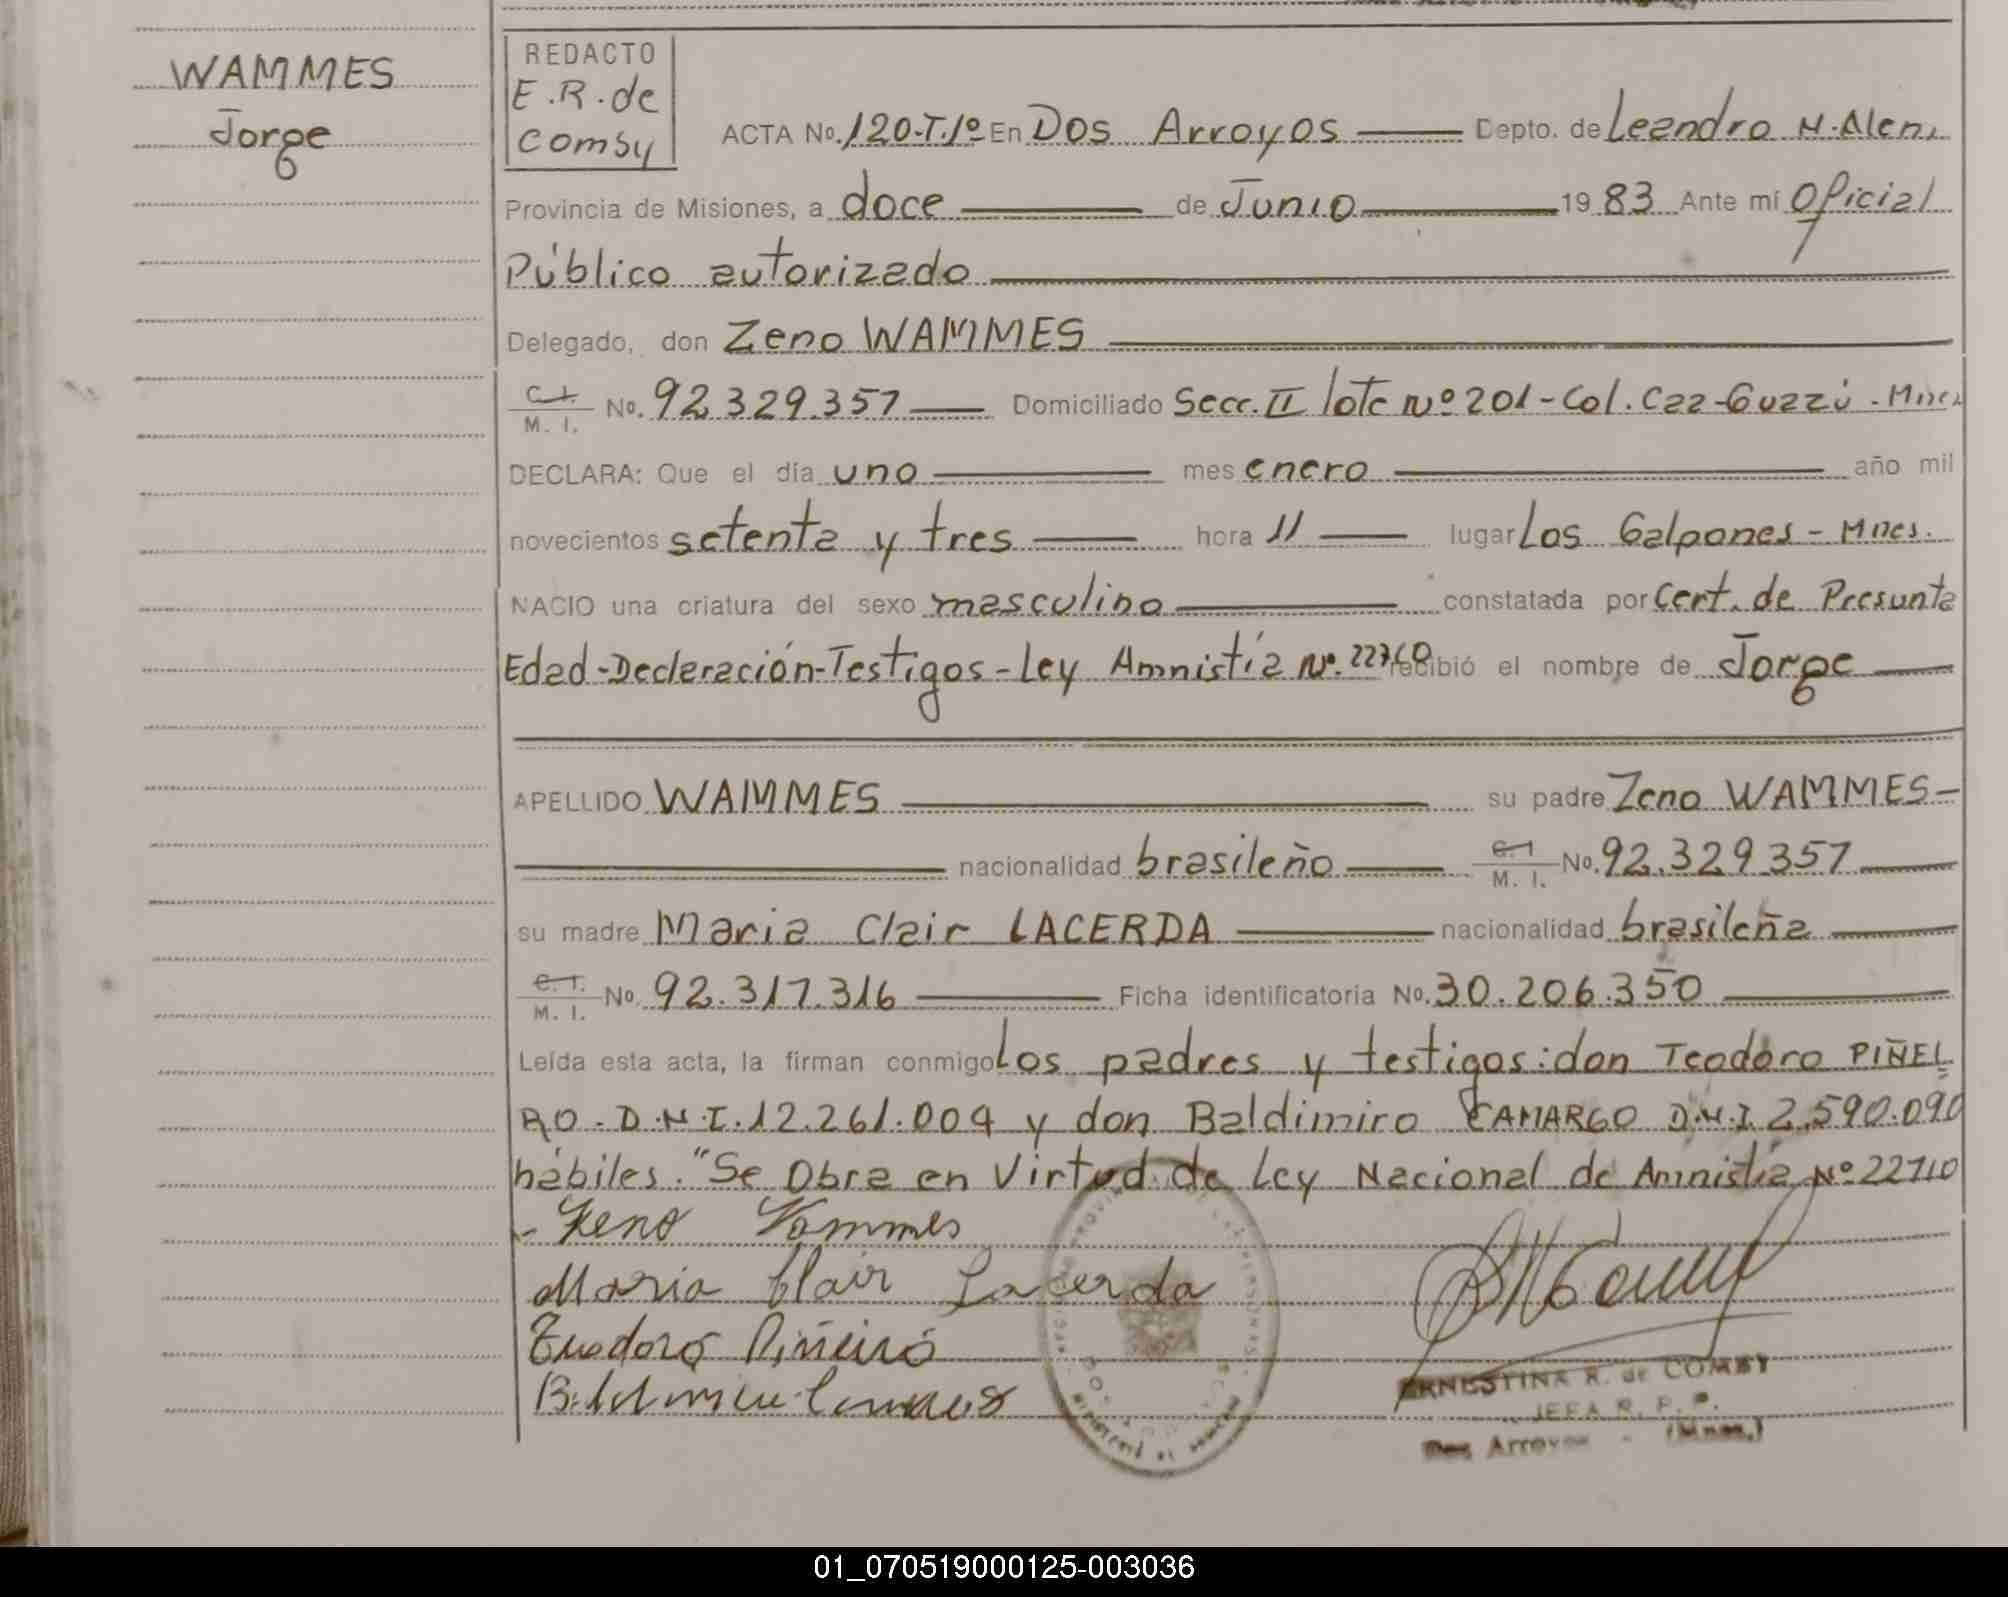 WAMMES
Jorge
REDACTO
E.R. de
Comby
ACTA No. 120-T.1º En Dos Arroyos Depto. de Leandro N. Alem,
Provincia de Misiones, a doce de Junio 1983 Ante mí Oficial
Público autorizado
Delegado, don Zeno WAMMES
C.I. M. I. No. 92.329.357 Domiciliado Secc. II lote Nº 201-Col. Caa-Guazú - Mnes
DECLARA: Que el día uno mes enero año mil
novecientos setenta y tres hora 11 lugar Los Galpones - Mnes.
NACIO una criatura del sexo masculino constatada por Cert. de Presunta
Edad-Declaración-Testigos-Ley Amnistía Nº. recibió el nombre de Jorge
APELLIDO WAMMES su padre Zeno WAMMES-
nacionalidad brasileño C.I. M. I. No. 92.329.357
su madre Maria Clair LACERDA nacionalidad brasileña
C.I. M. I. No. 92.317.316 Ficha identificatoria No. 30.206.350
Leída esta acta, la firman conmigo Los padres y testigos: don Teodoro PIÑEI
RO. D.N.I. 12.261.004 y don Baldimiro CAMARGO D.N.I. 2.590.090
hábiles. "Se Obra en Virtud de Ley Nacional de Amnistía Nº
- Zeno Wammes
Maria Clair Lacerda
Teodoro Piñeiro
ERNESTINA R. de COMBY
JEFA R. P. P.
Dos Arroyos - (Mnes.)
01_070519000125-003036